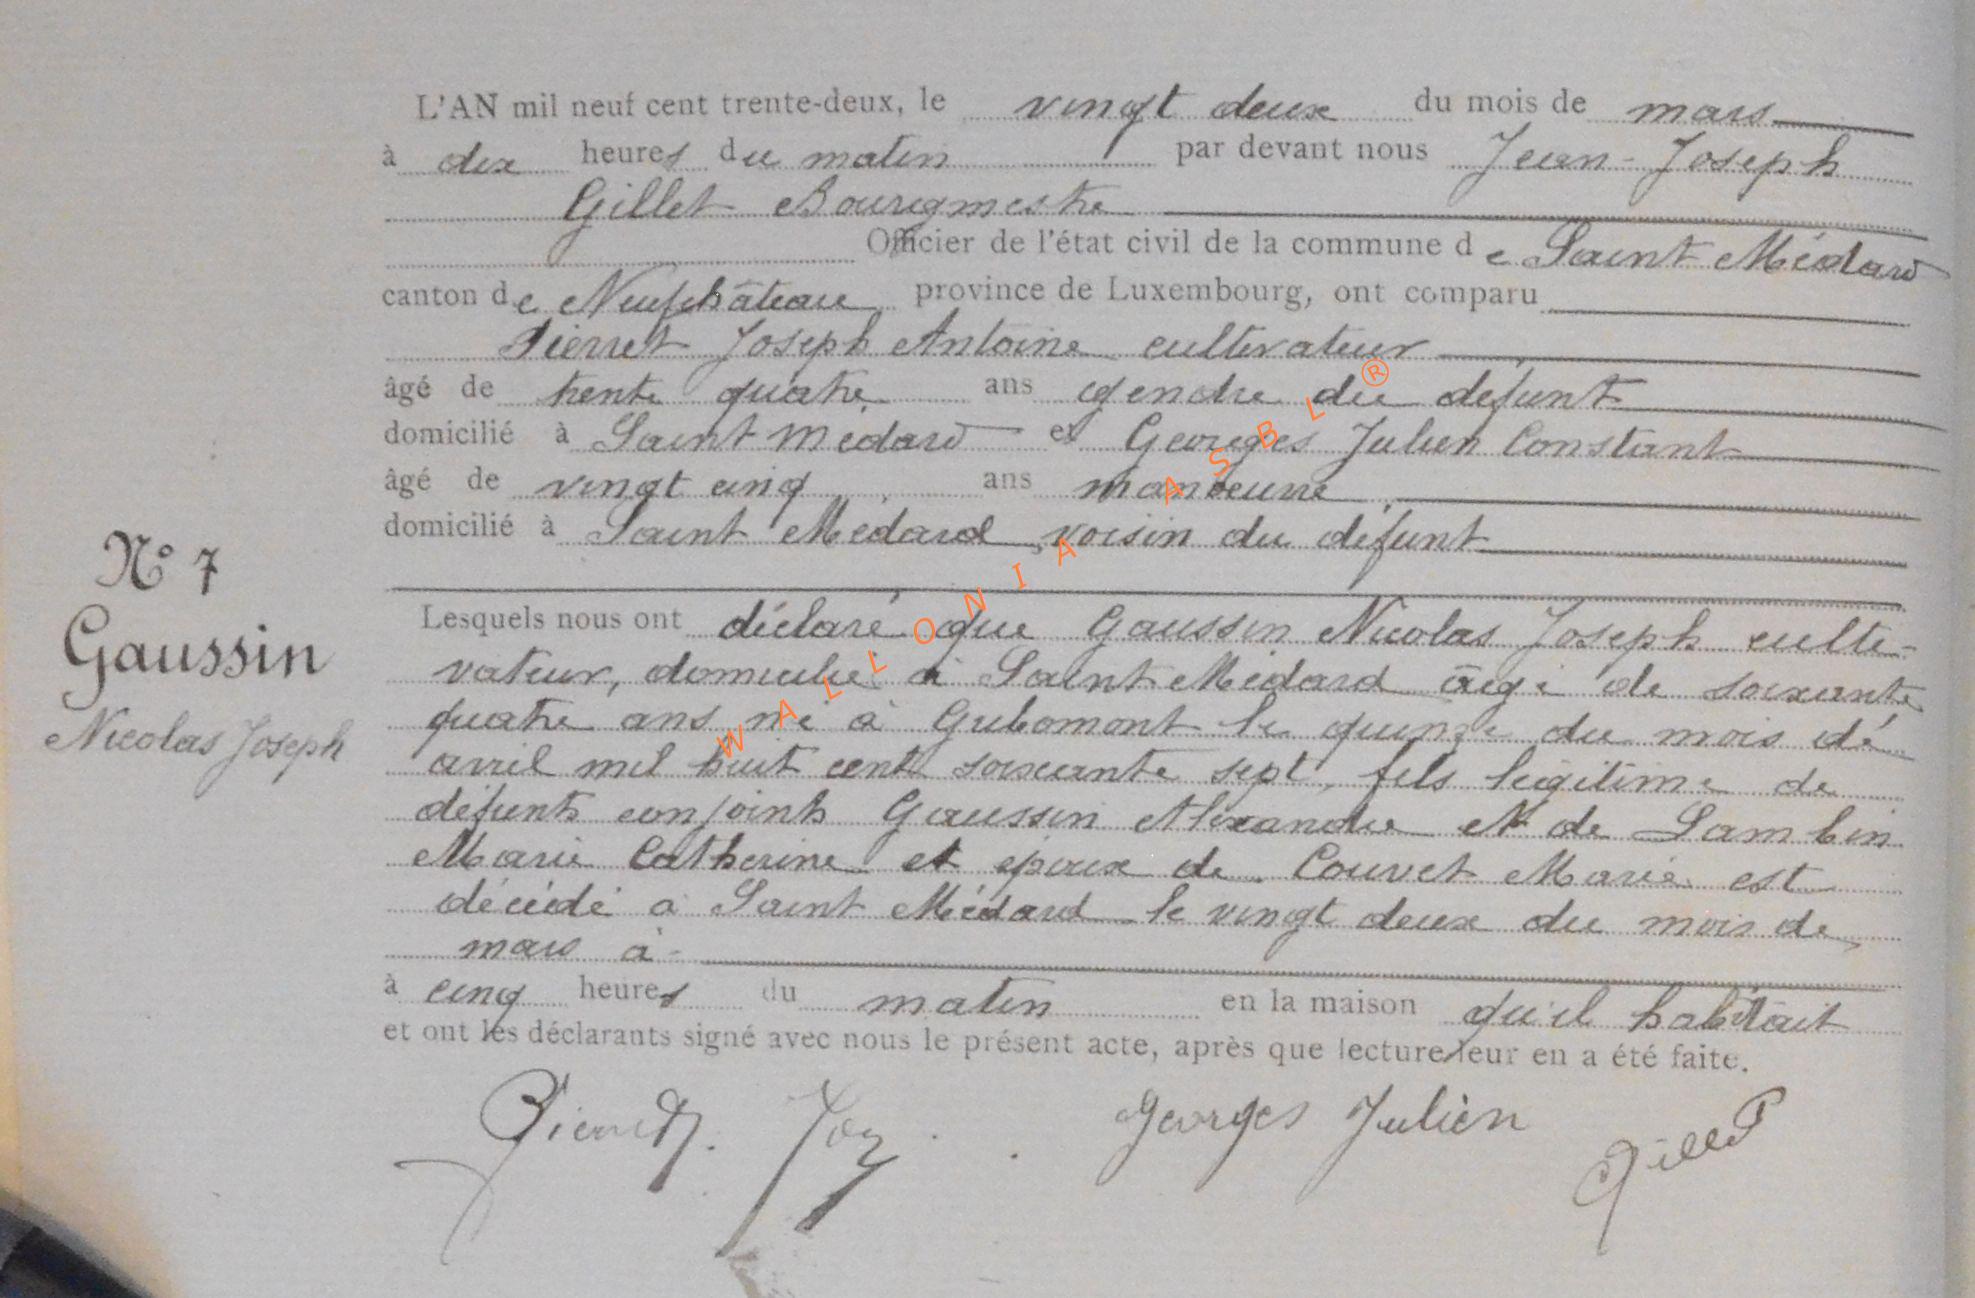 L'AN mil neuf cent trente-deux, le vingt deux du mois de mars
à dix heures du matin par devant nous Jean-Joseph
Gillet Bourgmestre
Officier de l'état civil de la commune de Saint Médard
canton de Neufchâteau province de Luxembourg, ont comparu
Pierret Joseph Antoine cultivateur
âgé de trente quatre ans gendre du défunt
domicilié à Saint Médard et Georges Julien Constant
âgé de vingt cinq ans manoeuvre
domicilié à Saint Médard, voisin du défunt
N° 7
Gaussin
Nicolas Joseph
Lesquels nous ont déclaré que Gaussin Nicolas Joseph culti-
vateur, domicilié à Saint Médard âgé de soixante
quatre ans né à Gribomont le quinze du mois de
avril mil huit cent soixante sept, fils légitime de
défunts conjoints Gaussin Alexandre et de Lambin
Marie Catherine et époux de Couvet Marie est
décédé à Saint Médard le vingt deux du mois de
mars à
à cinq heures du matin en la maison qu'il habitait
et ont les déclarants signé avec nous le présent acte, après que lecture leur en a été faite.
Pierret Jos Georges Julien Gillet
WALLONIA ASBL ®